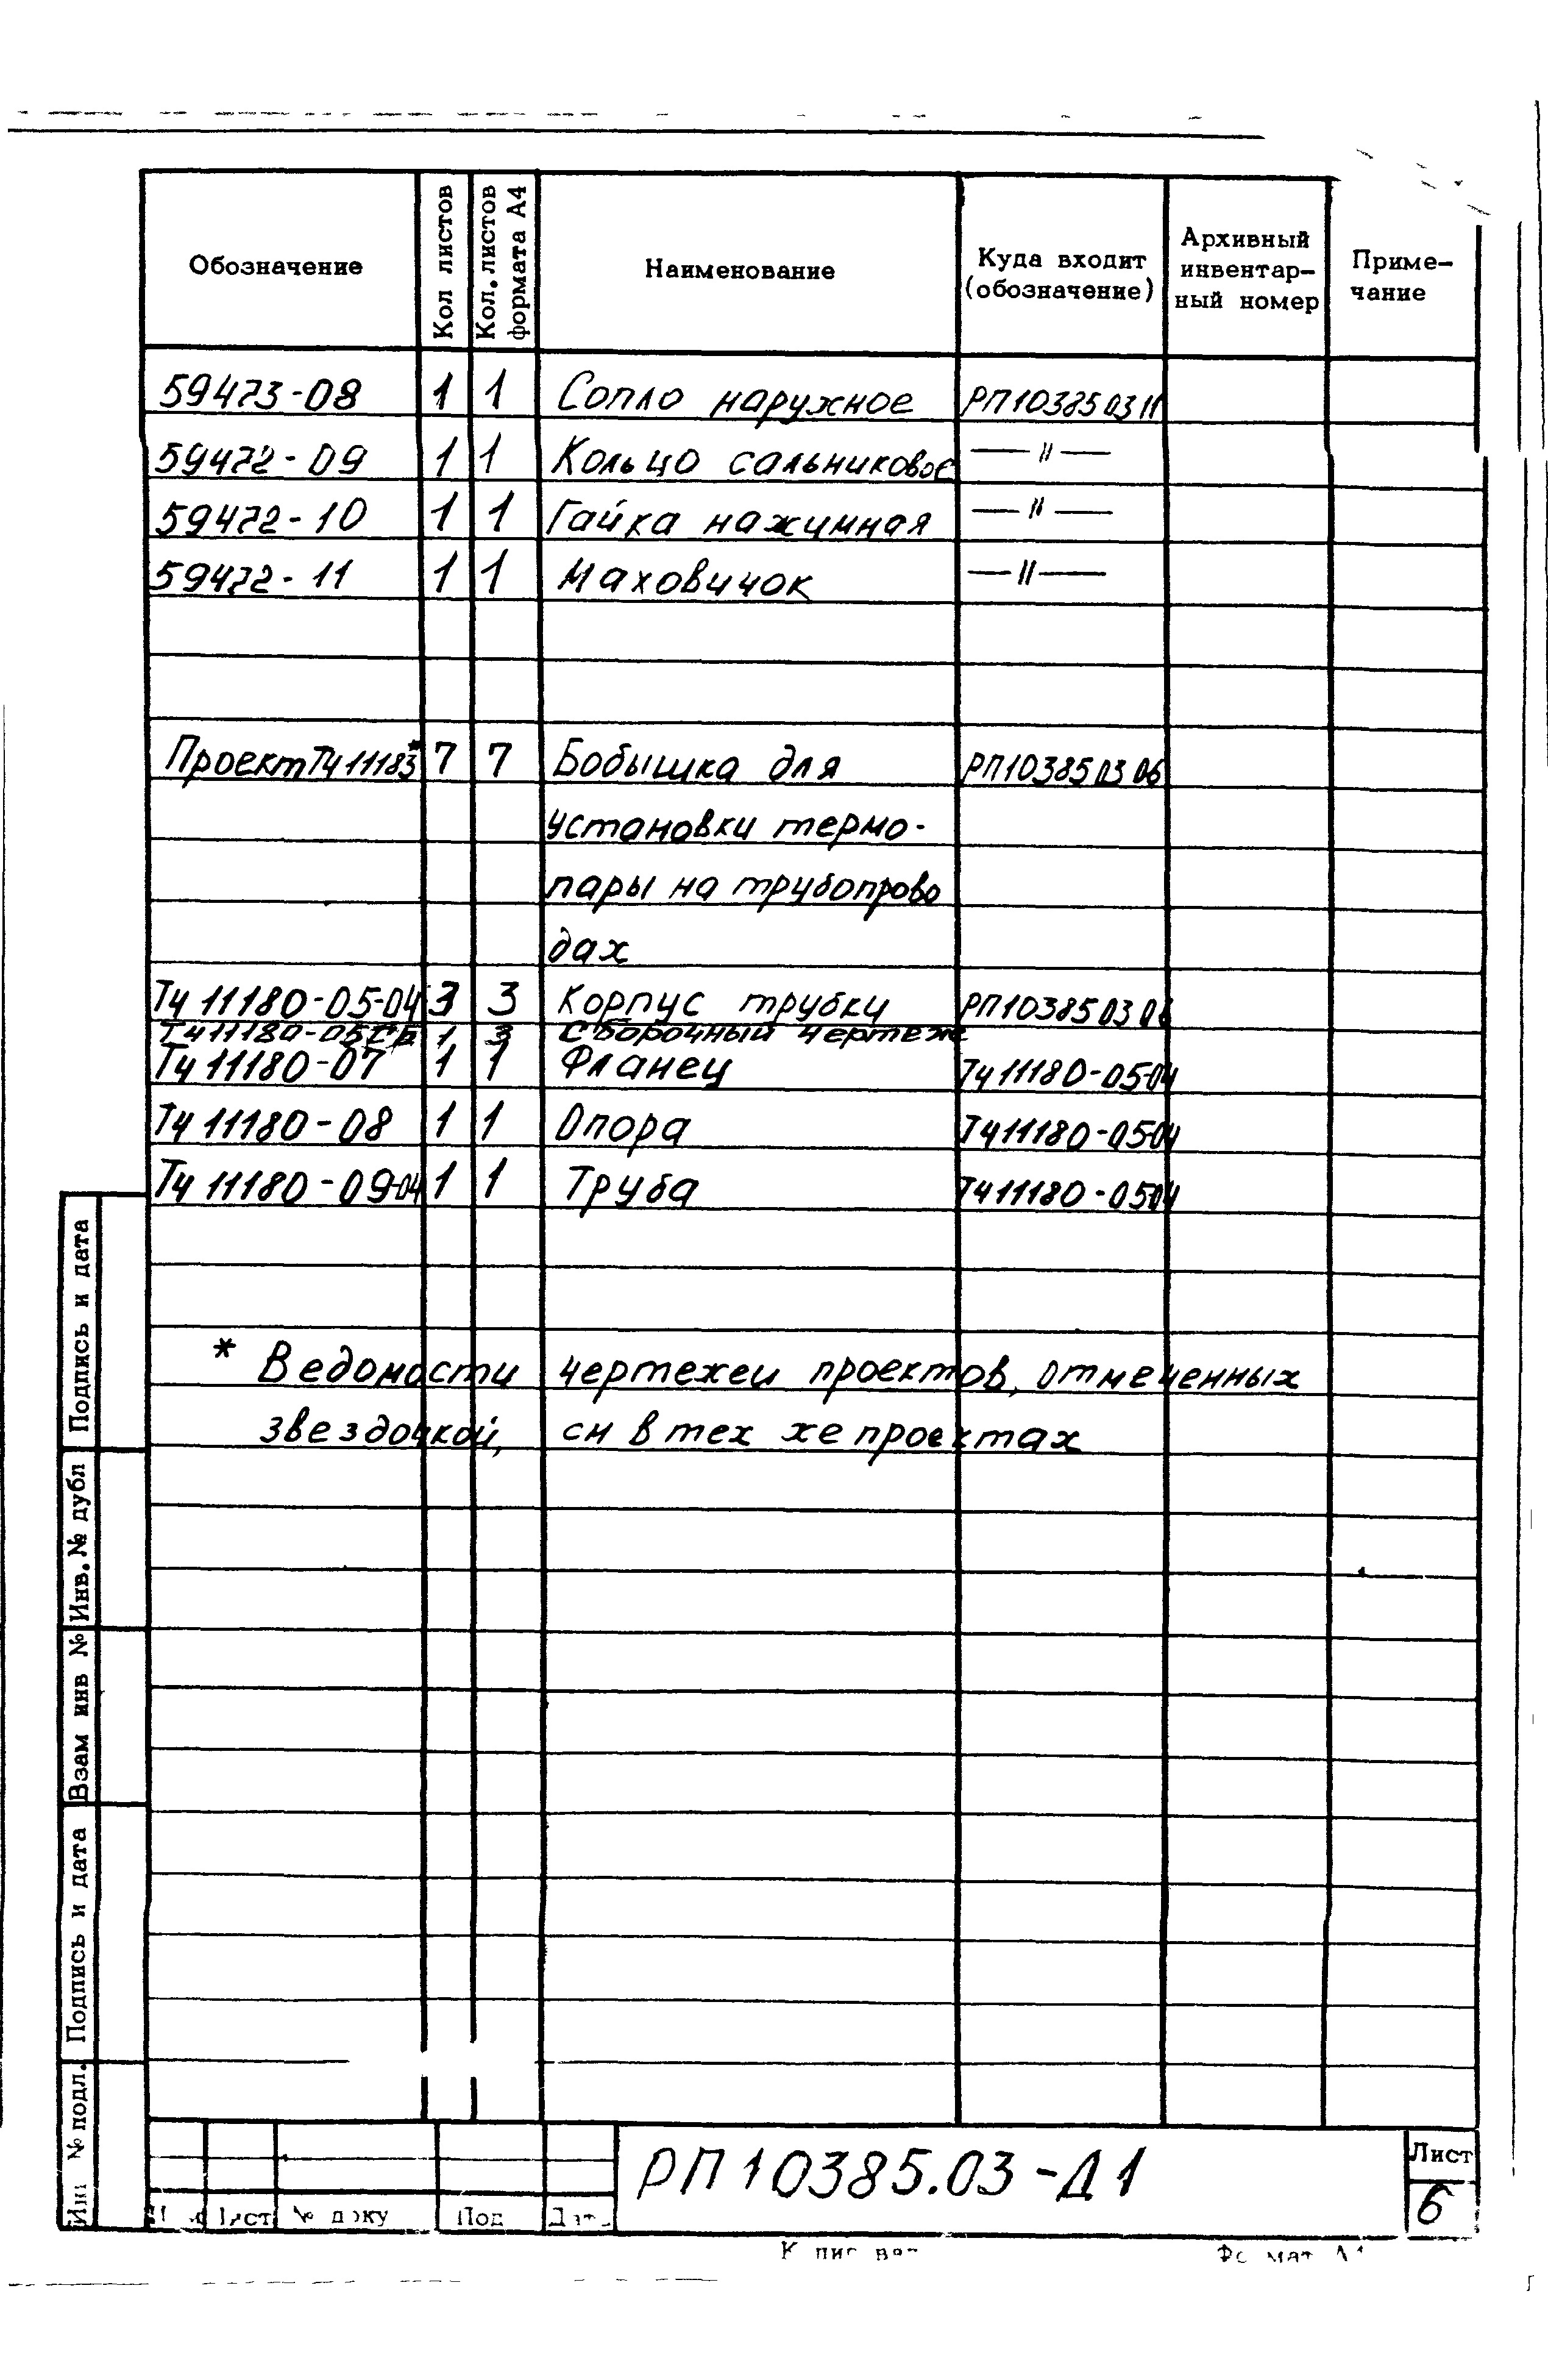 Обозначение Кол листов Кол. листов формата А4 Наименование Куда входит (обозначение) Архивный инвентар- ный номер Приме- чание
59473-08 1 1 Сопло наружное РП10385 03 11
59472-09 1 1 Кольцо сальниковое — " —
59472-10 1 1 Гайка нажимная — " —
59472-11 1 1 Маховичок — " —
Проект Тч 11183* 7 7 Бобышка для РП10385 03 06
установки термо-
пары на трубопрово
дах
Тч 11180-05-04 3 3 Корпус трубки РП10385 03 06
Тч 11180-05СБ 1 3 Сборочный чертеж
Тч 11180-07 1 1 Фланец Тч 11180-05-04
Тч 11180-08 1 1 Опора Тч 11180-05-04
Тч 11180-09-04 1 1 Труба Тч 11180-05-04
* Ведомости чертежеи проектов, отмеченных
звездочкой, см в тех же проектах
Подпись и дата
Инв. № дубл
Взам инв №
Подпись и дата
№ подл.
РП10385.03-Д1
Лист
6